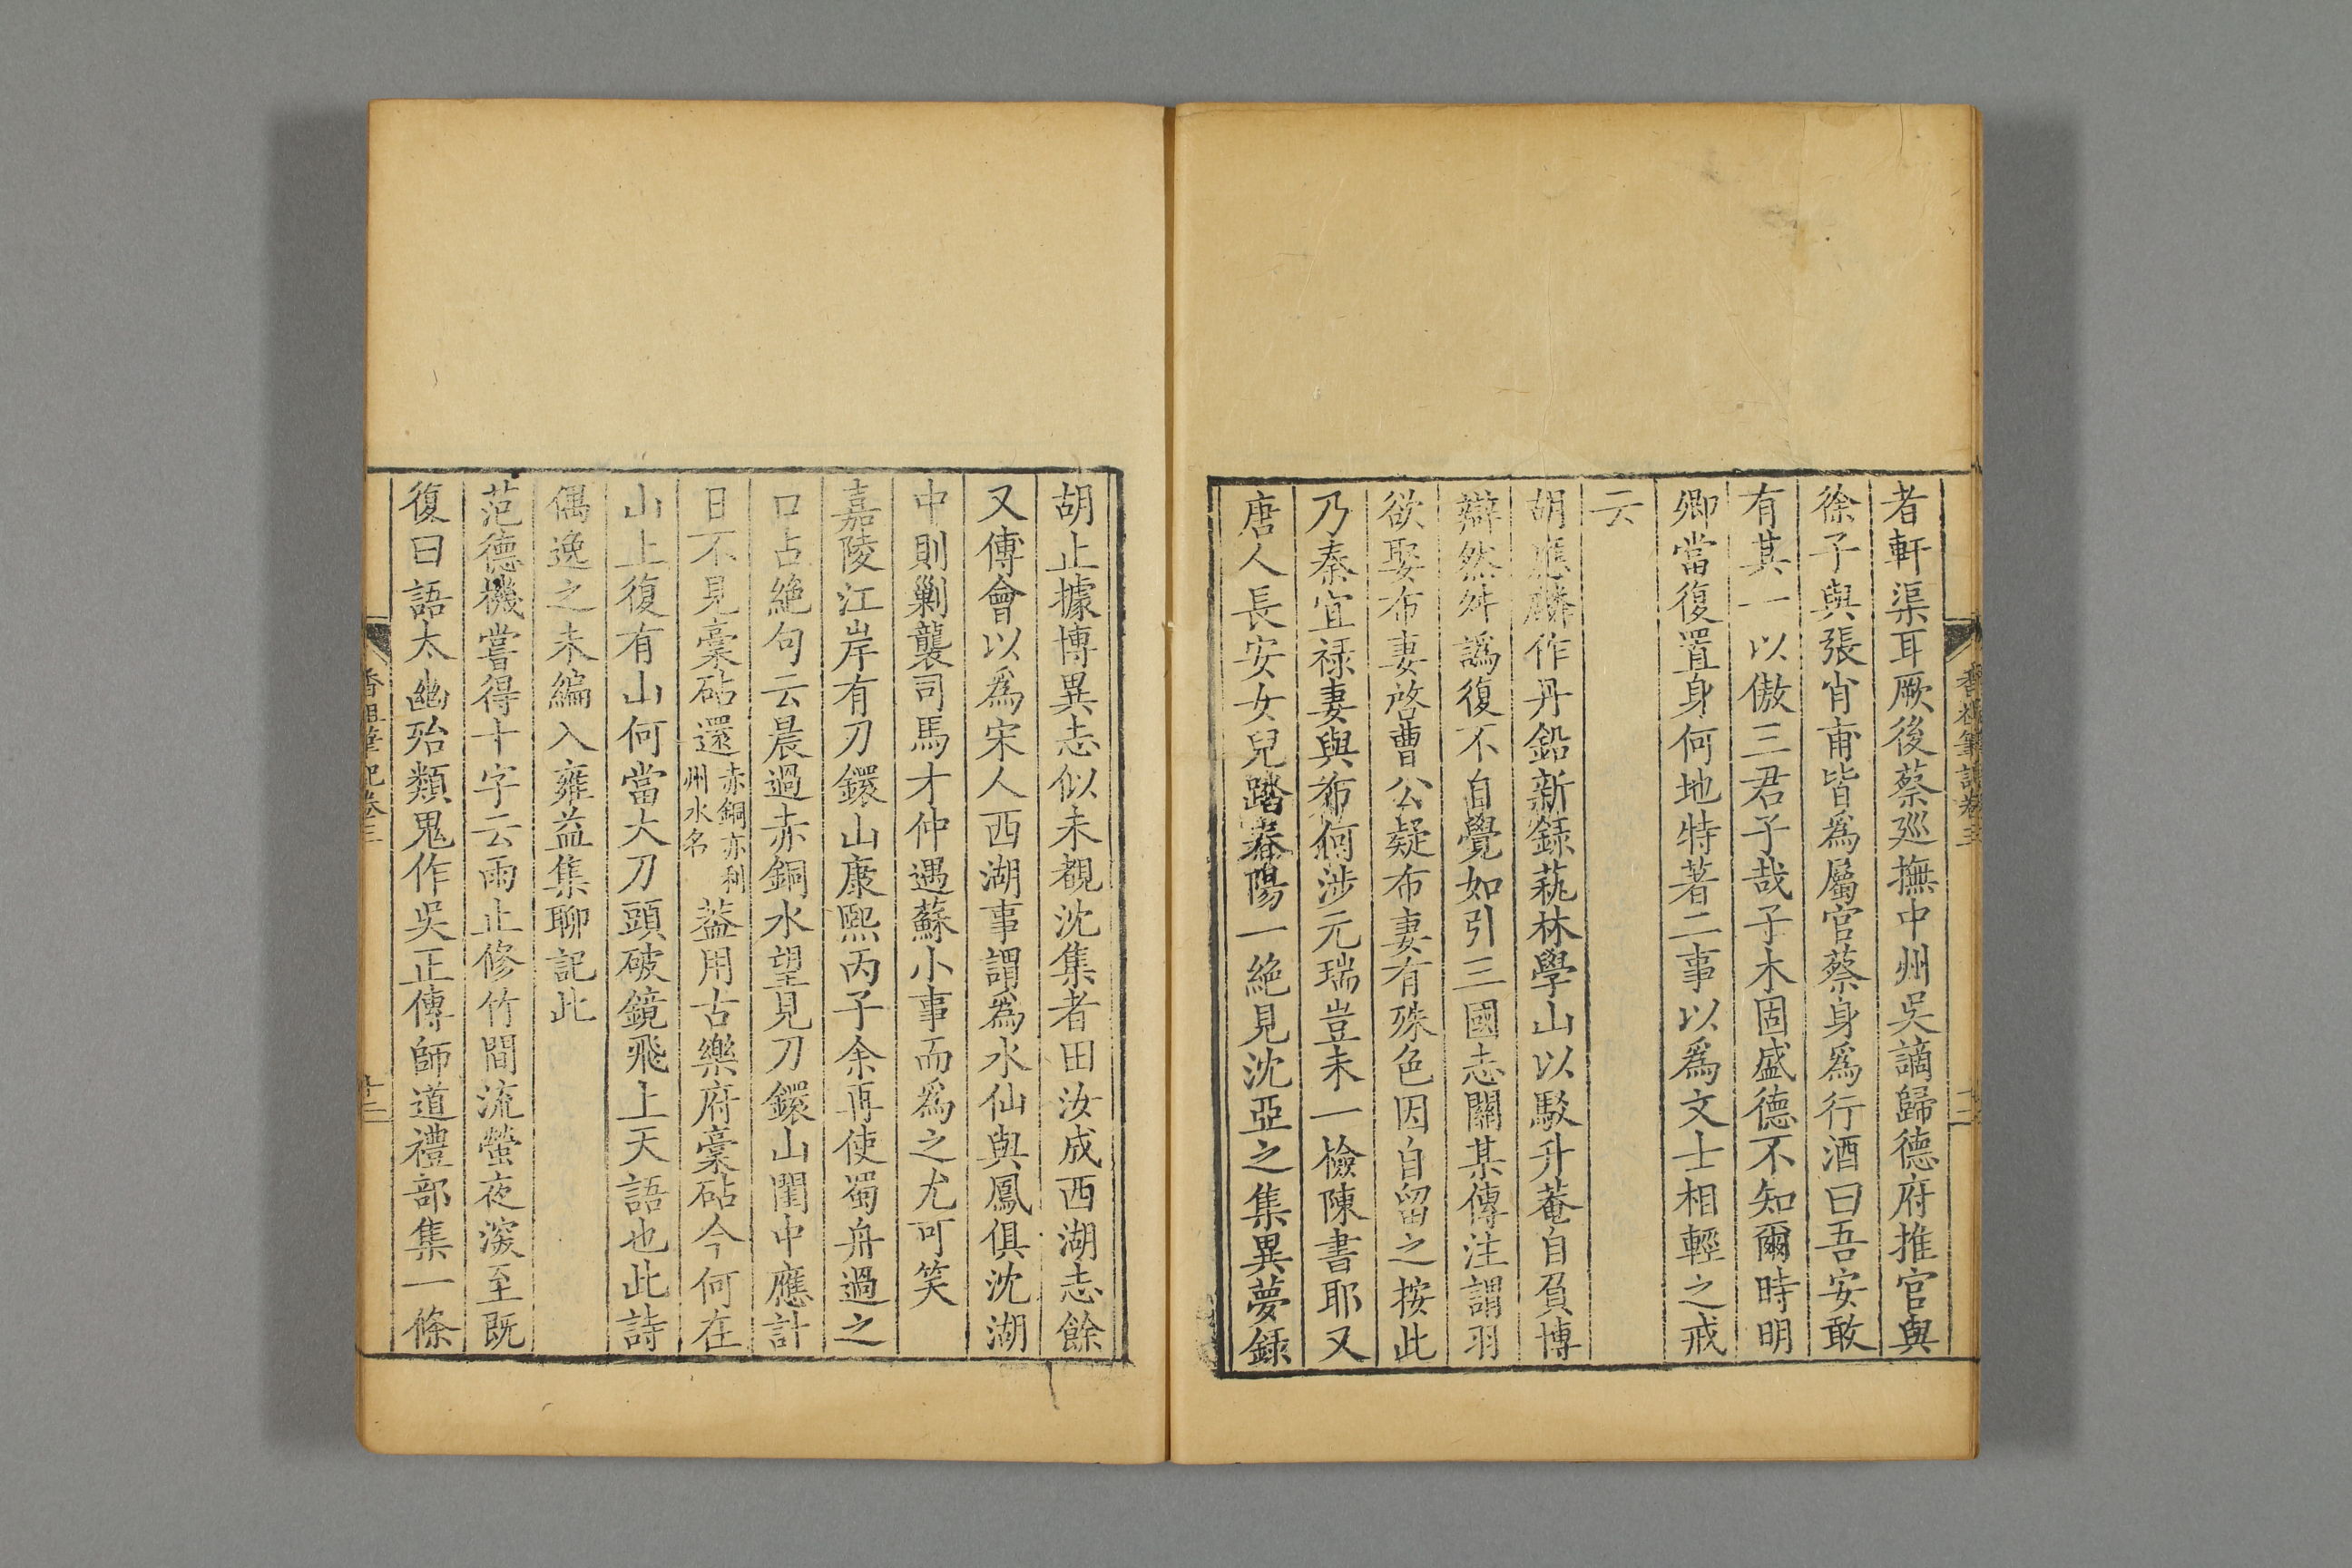 者軒渠耳厥後蔡廵撫中州吳謫歸德府推官與
徐子與張肖甫皆爲屬官蔡身爲行酒曰吾安敢
有其一以傲三君子哉子木固盛德不知爾時明
卿當復置身何地特著二事以爲文士相輕之戒
云
胡應麟作丹鉛新録蓺林學山以駁升菴自負博
辯然舛譌復不自覺如引三國志關某傳注謂羽
欲娶布妻啓曹公疑布妻有殊色因自留之按此
乃秦宜禄妻與布何涉元瑞豈未一檢陳書耶又
唐人長安女兒踏春陽一絶見沈亞之集異夢録
胡止據博異志似未覩沈集者田汝成西湖志餘
又傅會以爲宋人西湖事謂爲水仙與鳳俱沈湖
中則剿襲司馬才仲遇蘇小事而爲之尤可笑
嘉陵江岸有刀鐶山康熙丙子余再使蜀舟過之
口占絶句云晨過赤銅水望見刀鐶山閨中應計
日不見藁砧還赤銅亦利州水名葢用古樂府藁砧今何在
山上復有山何當大刀頭破鏡飛上天語也此詩
偶逸之未編入雍益集聊記此
范德機嘗得十字云雨止修竹間流螢夜深至既
復曰語太幽殆類鬼作吳正傳師道禮部集一條
香祖筆記卷三
十二